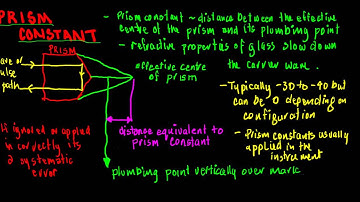 PRISM
CONSTANT
- Prism constant ~ distance between the effective
centre of the prism and its plumbing point
- refractive properties of glass slow down
the carrier wave.
PRISM
effective centre
of prism
wave or
pulse
path
- Typically -30 to -40 but
can be 0 depending on
configuration
- Prism constants usually
applied in the
instrument
distance equivalent to
Prism Constant
If ignored or applied
incorrectly its
a systematic
error
plumbing point vertically over mark